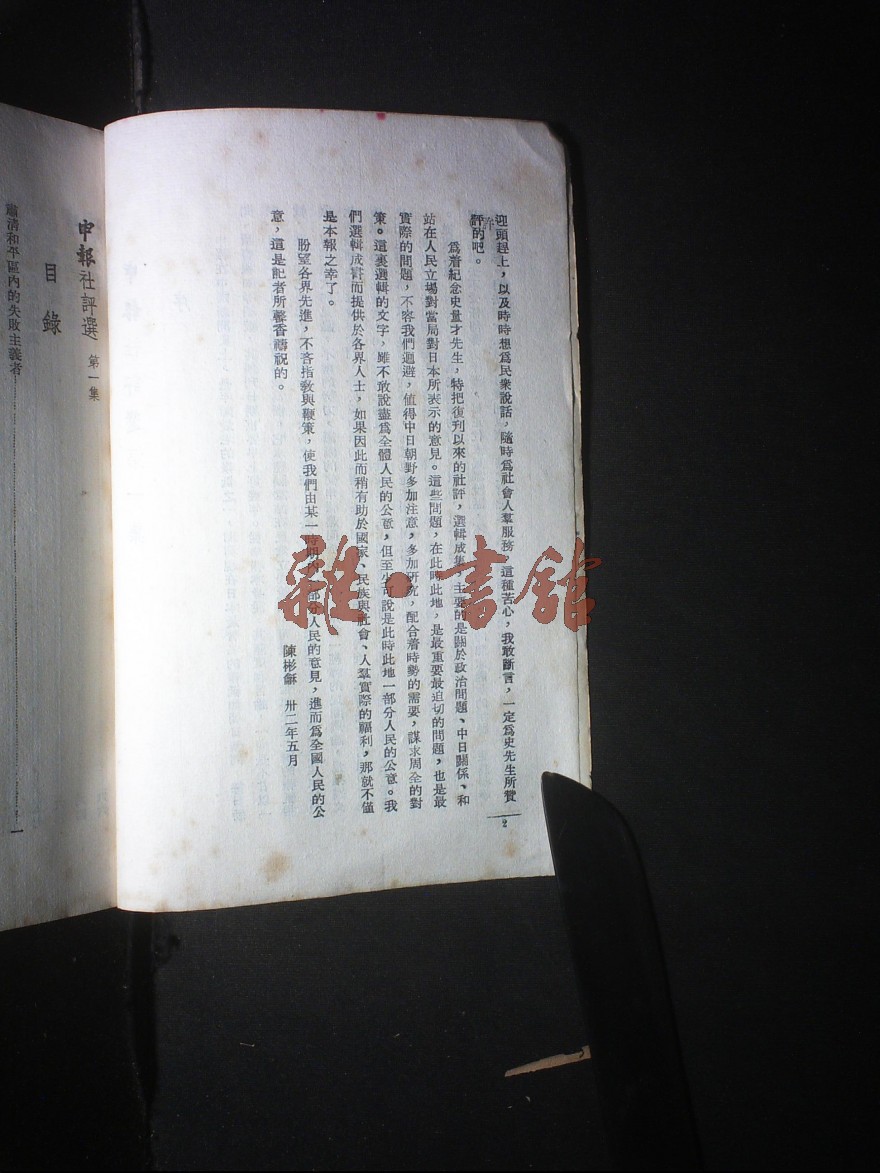 迎頭趕上，以及時時想爲民衆說話，隨時爲社會人羣服務，這種苦心，我敢斷言，一定爲史先生所贊
許
評的吧。
爲着紀念史量才先生，特把復刊以來的社評，選輯成集，主要的是關於政治問題、中日關係、和
站在人民立場對當局對日本所表示的意見。這些問題，在此時此地，是最重要最迫切的問題，也是最
實際的問題，不容我們遲避，値得中日朝野多加注意，多加研究，配合着時勢的需要，謀求周全的對
策。這裏選輯的文字，雖不敢說盡爲全體人民的公意，但至少可說是此時此地一部分人民的公意。我
們選輯成書而提供於各界人士，如果因此而稍有助於國家、民族與社會、人羣實際的福利，那就不僅
是本報之幸了。
盼望各界先進，不吝指敎與鞭策，使我們由某一時期內一部分人民的意見，進而爲全國人民的公
意，這是記者所馨香禱祝的。
陳彬龢 卅二年五月
2
申報社評選 第一集
目錄
肅清和平區內的失敗主義者
雜·書館